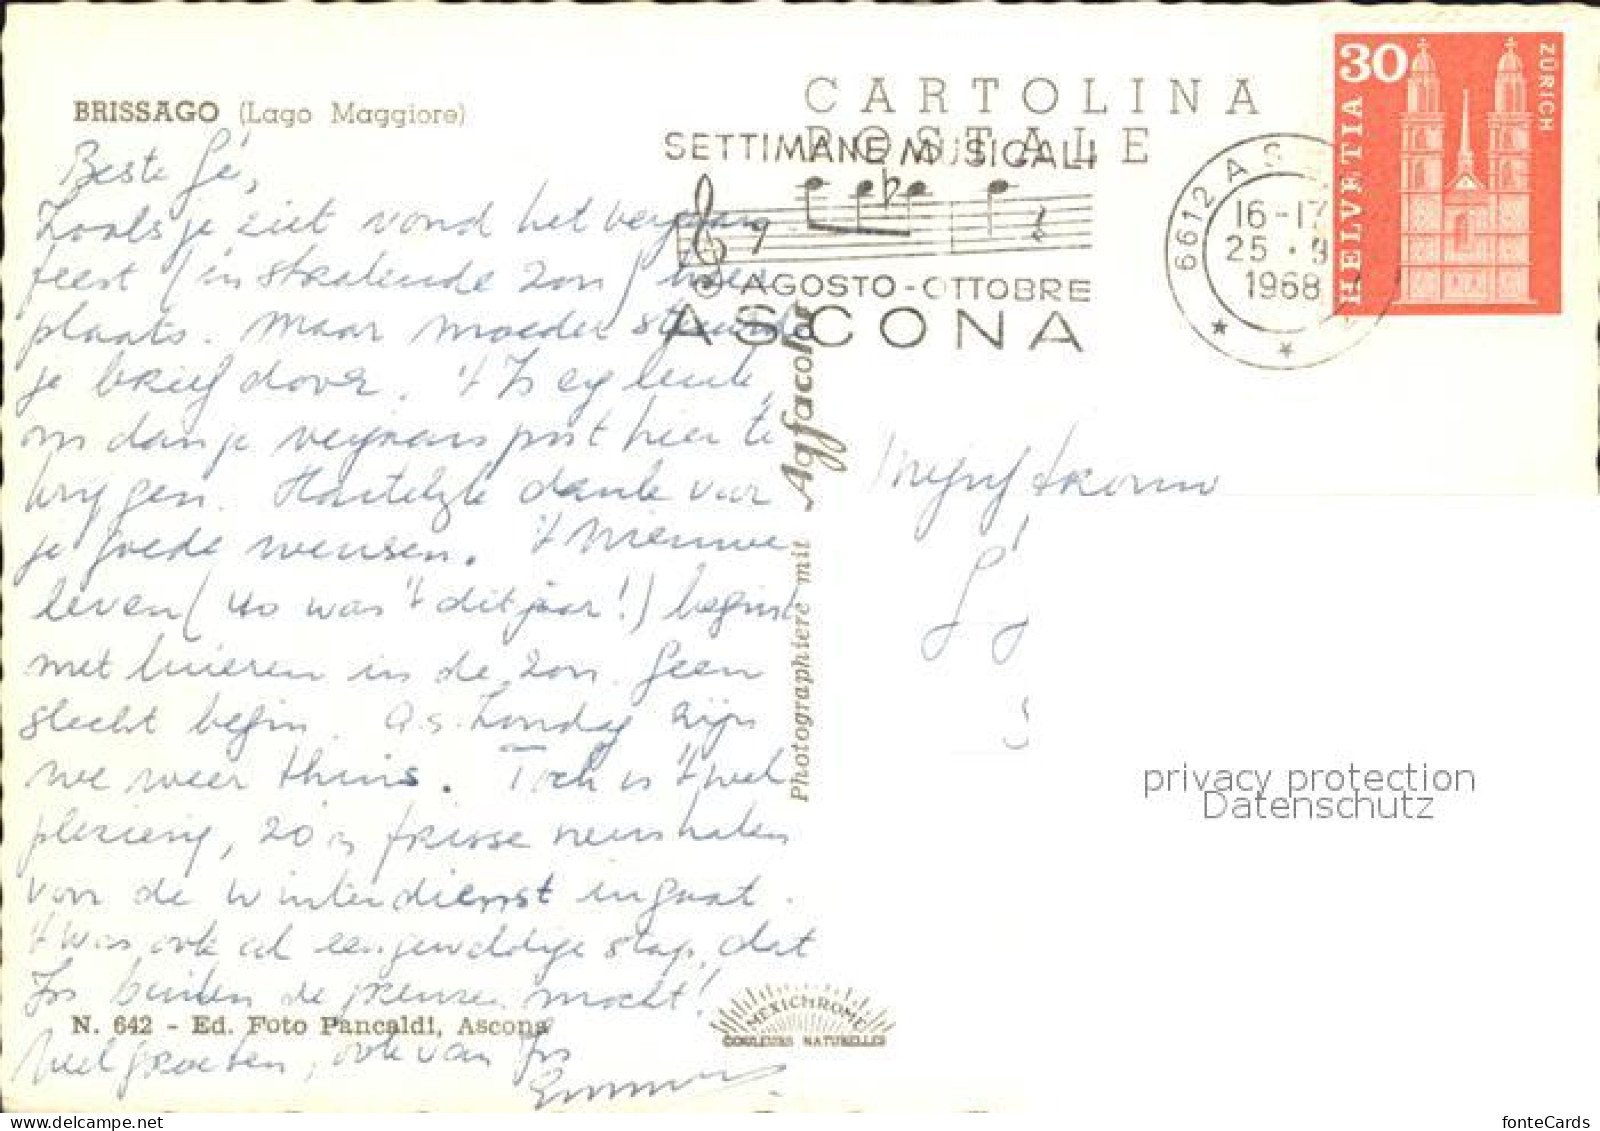 BRISSAGO (Lago Maggiore)
CARTOLINA
POSTALE
SETTIMANE MUSICALI
AGOSTO - OTTOBRE
ASCONA
6612 AS
16-17
25 . 9
1968
30
HELVETIA
ZÜRICH
Beste Gé,
Zoals je ziet vond het
feest (in stralende zon) hier
plaats. Maar moeder stuurde
je brief door. 't Is erg leuk,
om dan je post hier te
krijgen. Hartelijk dank voor
je goede wensen. 't Nieuwe
leven (zo was 't dit jaar!) begint
met luieren in de zon. Geen
slecht begin. a.s. Zondag zijn
we weer thuis. Toch is 't wel
plezierig, zo'n frisse neus halen
voor de winterdienst ingaat.
't Was ook al een geweldige stap, dat
Jos buiten de grenzen mocht!
Veel groeten, ook van Jos
Mejuf
Photographiere mit Agfacolor
N. 642 - Ed. Foto Pancaldi, Ascona
MEXICHROME
COULEURS NATURELLES
privacy protection
Datenschutz
fonteCards